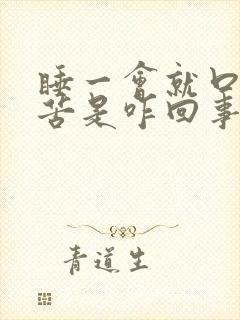 睡一會就口
苦是咋回事
青道生